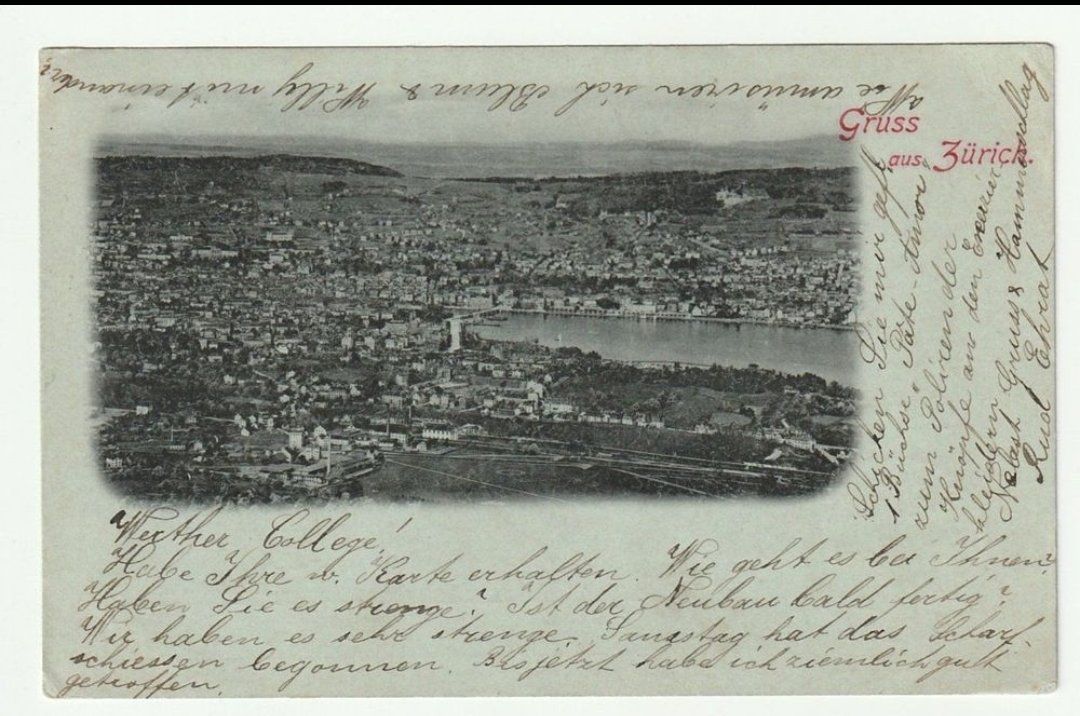 Gruss
aus Zürich.
Werther College!
Habe Ihre w. Karte erhalten. Wie geht es bei Ihnen?
Haben Sie es strenge? Ist der Neubau bald fertig?
Wir haben es sehr strenge. Samstag hat das Scharf-
schiessen begonnen. Bis jetzt habe ich ziemlich gut
getroffen.
Schicken Sie mir gefl.
1 Büchse Pâte-Amor
zum Polieren der
Knöpfe an den Exerzier
kleidern
Nebst Gruss & Hammerschlag
Rud Ehrat
Wie amüsiren sich Blum & Willy miteinander?